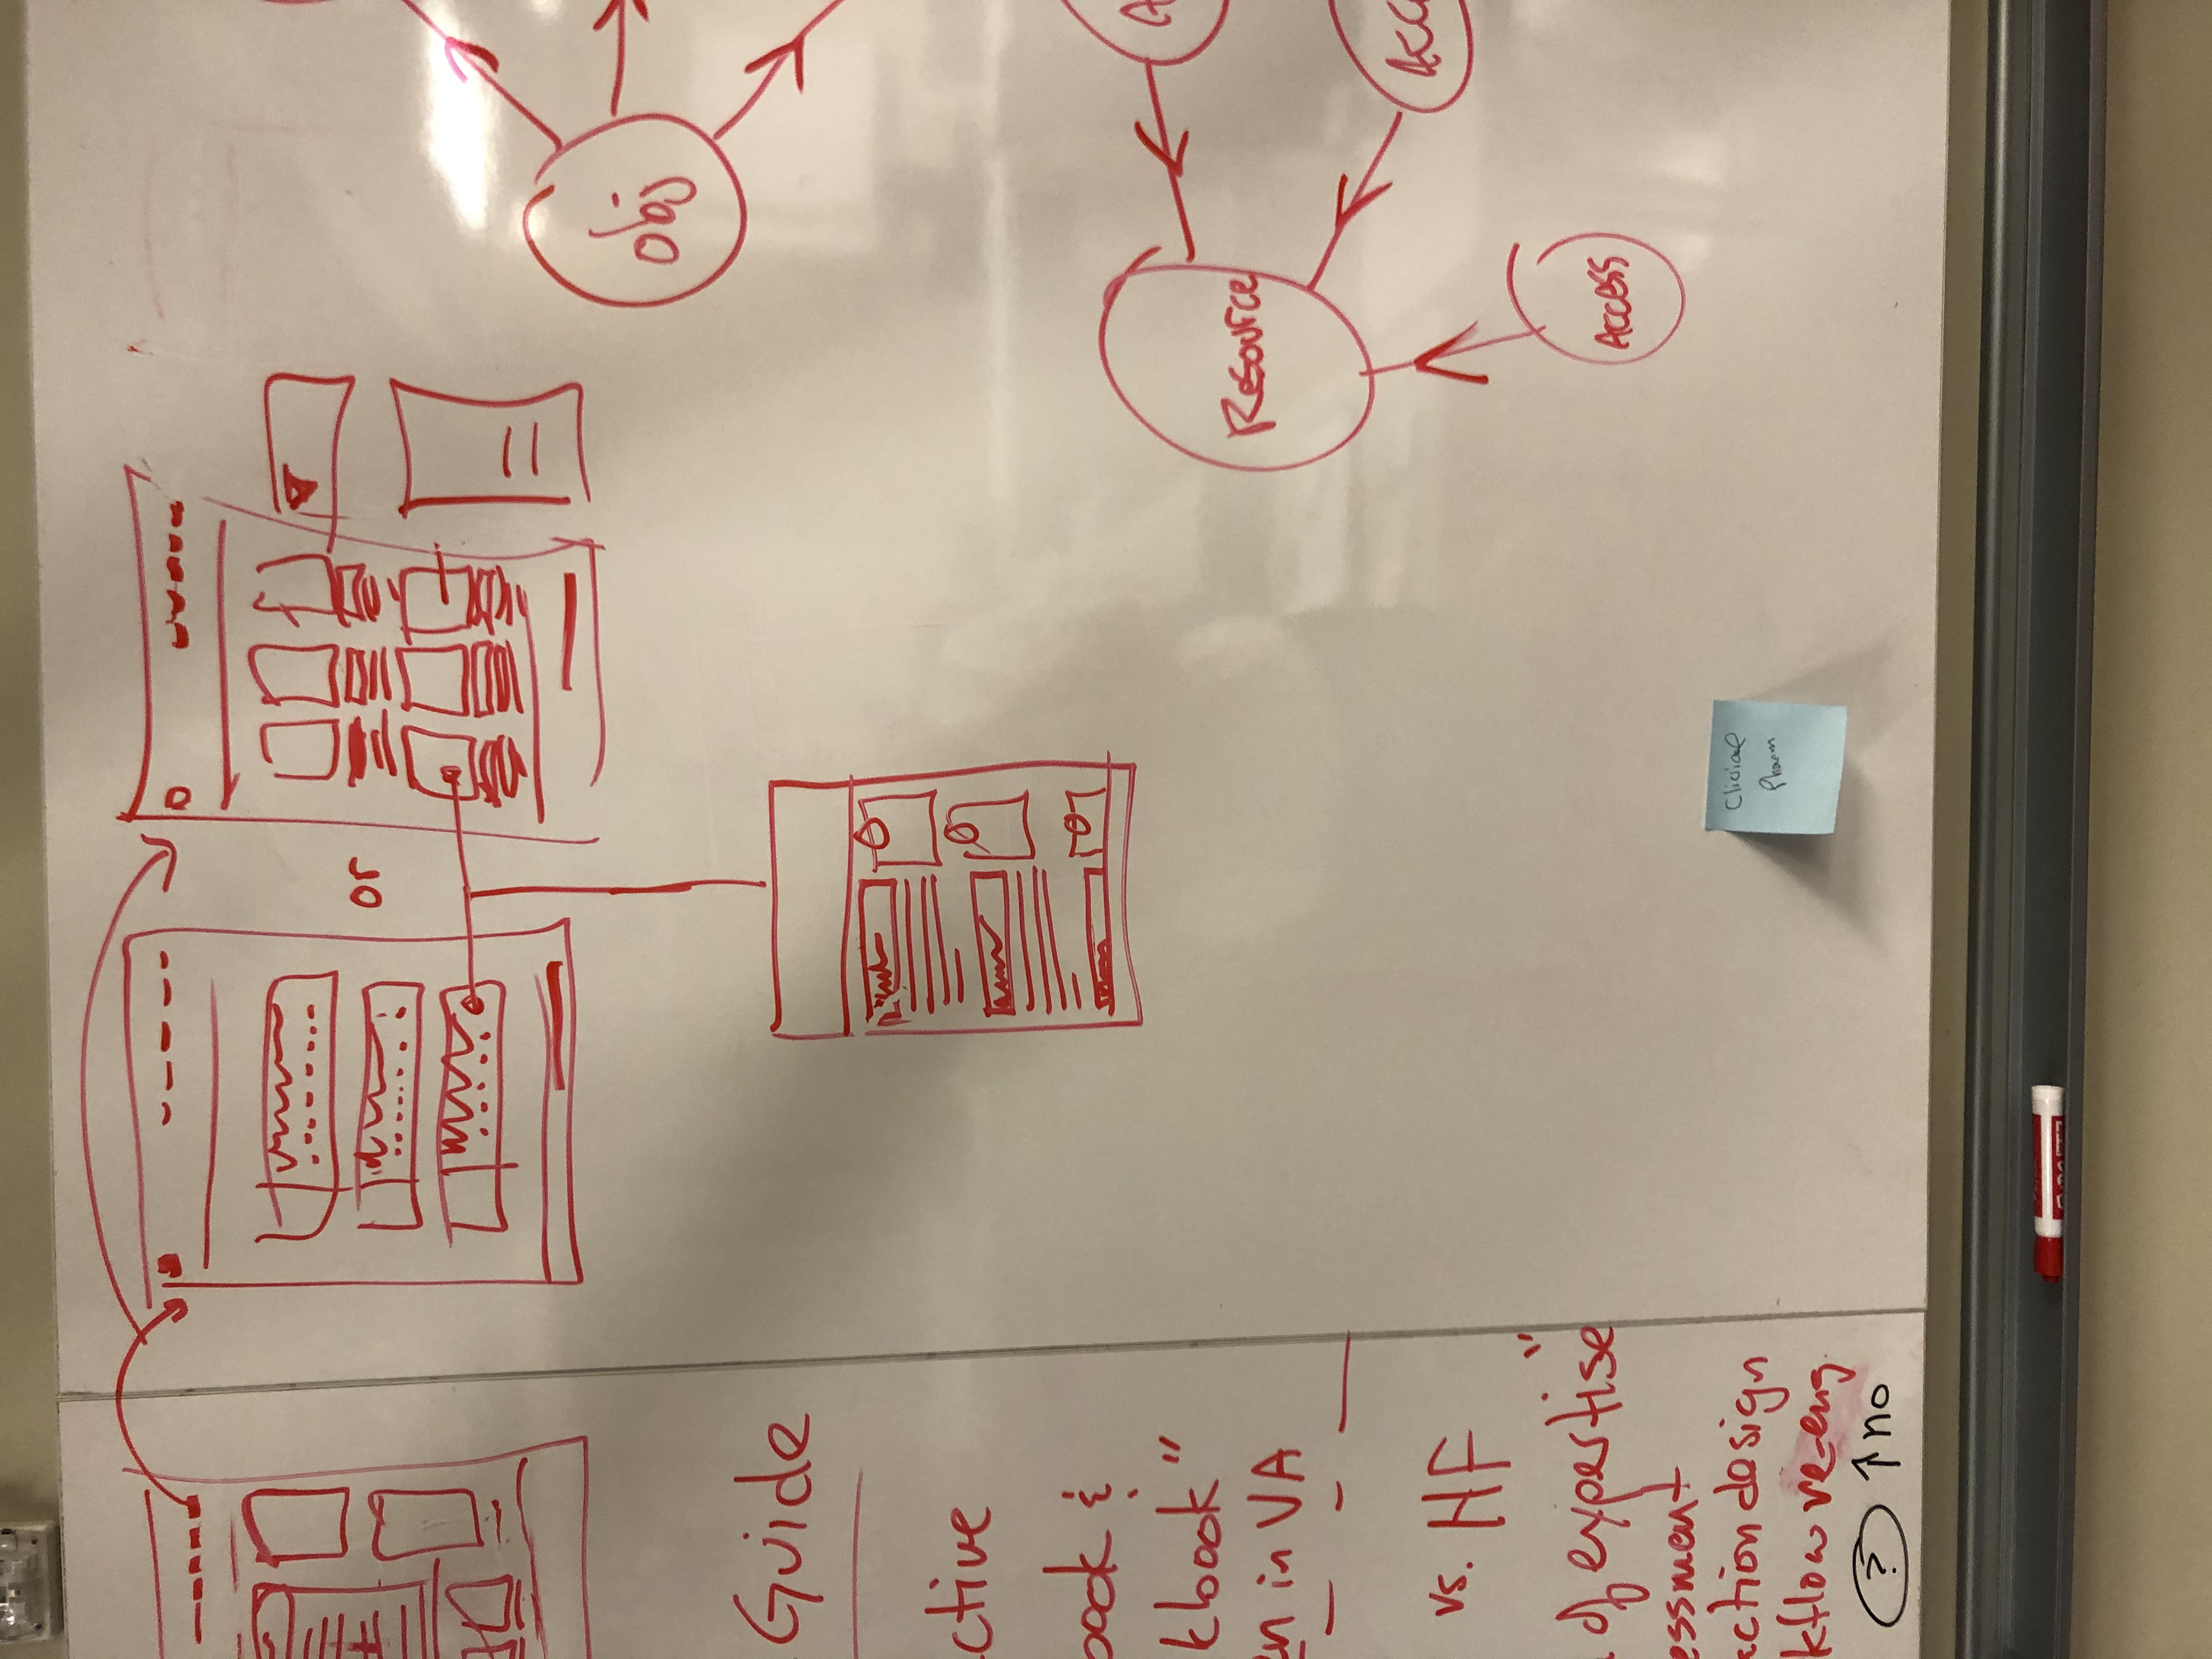 or
obj
Guide
ctive
book &
kbook"
en in VA
vs. HF
of expertise"
essment
action design
kflow re-eng.
? ↑ no
Resource
Access
Acc
A
Clinical
Pharm